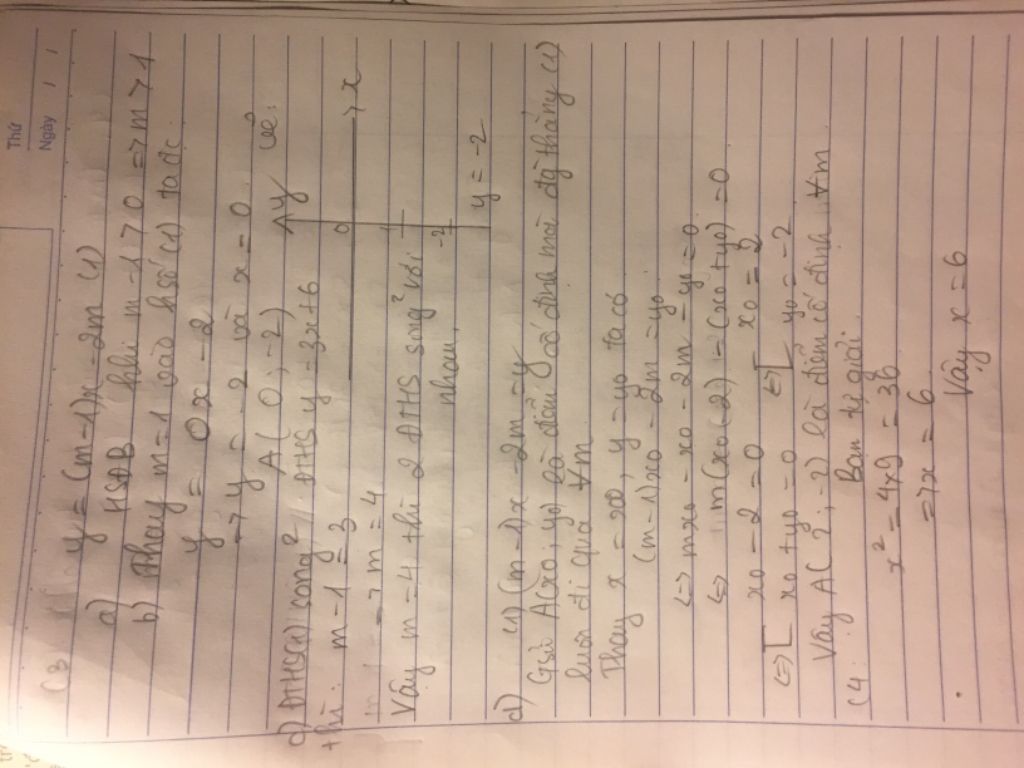 Thứ
Ngày
C3
y = (m-1)x - 2m (1)
a) HSĐB khi m - 1 > 0 => m > 1
b) Thay m = 1 vào hsố (1) ta đc
y = 0x - 2
=> y = -2 và x = 0
A ( 0 ; -2)
Vẽ:
y
x
0
-2
y = -2
c) ĐTHS(1) song² ĐTHS y = 3x + 6
thì: m - 1 = 3
=> m = 4
Vậy m = 4 thì 2 ĐTHS song² với
nhau.
d) (1) (m - 1)x - 2m = y
Gsử A(x0; y0) là điểm cố định mà đg thẳng (1)
luôn đi qua ∀m
Thay x = x0, y = y0 ta có
(m - 1)x0 - 2m = y0
<=> mx0 - x0 - 2m - y0 = 0
<=> m(x0 - 2) - (x0 + y0) = 0
<=> [ x0 - 2 = 0 <=> [ x0 = 2
x0 + y0 = 0 y0 = -2
Vậy A( 2; -2) là điểm cố định ∀m
C4. Bạn tự giải.
x² = 4x9 = 36
=> x = 6
Vậy x = 6